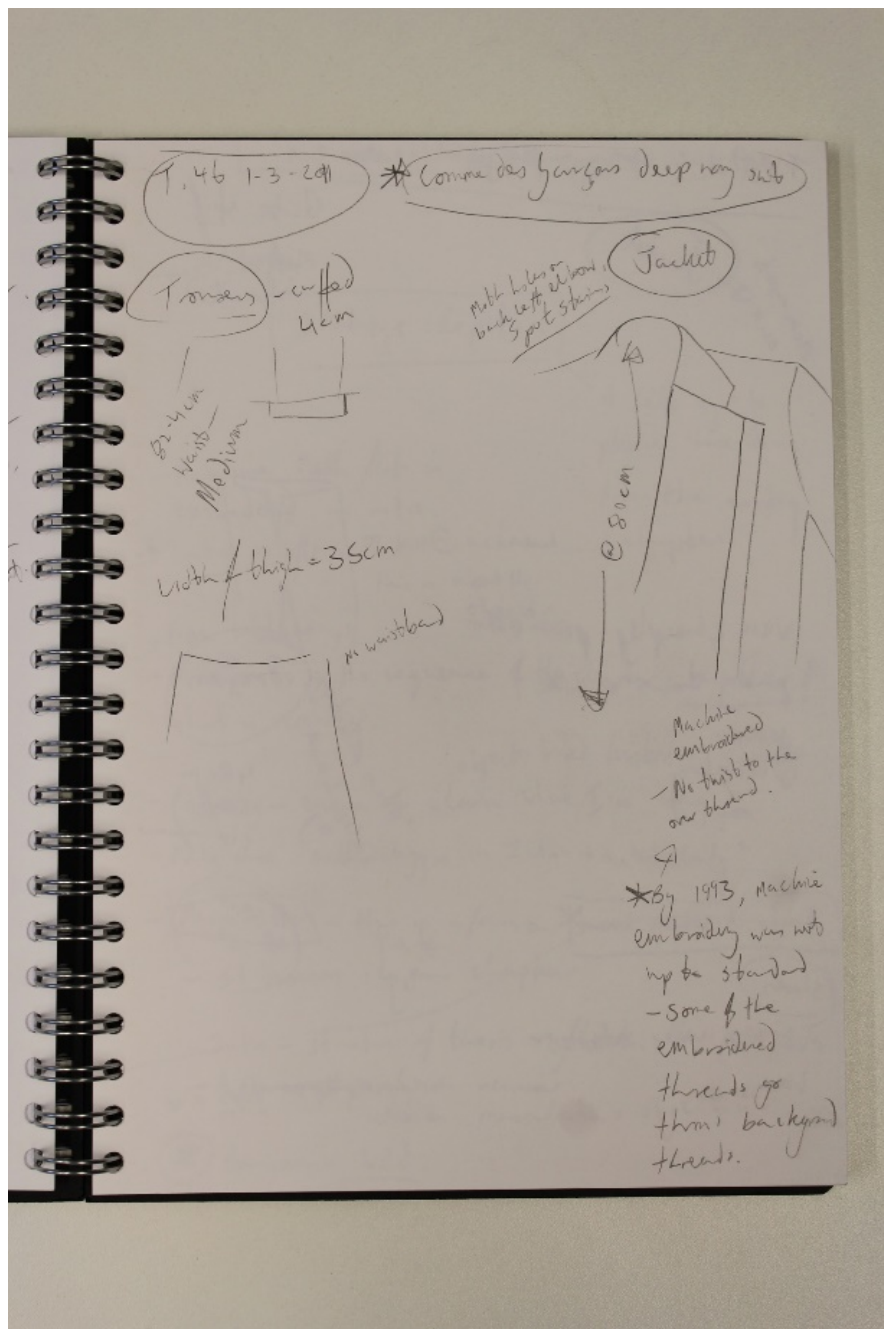 T. 46 1-3-2011
* Comme des Garçons deep navy suit
Trousers - cuffed
4cm
82.4cm
waist -
Medium
width of thigh = 35cm
No waistband
Jacket
Moth holes on
back left elbow.
Spot stains
@ 80cm
Machine
embroidered
- No twist to the
over thread.
* By 1993, Machine
embroidery was not
up to standard
- Some of the
embroidered
threads go
thro' background
threads.